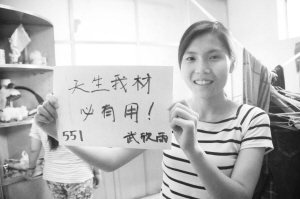 天生我材
必有用！
551 武欣雨